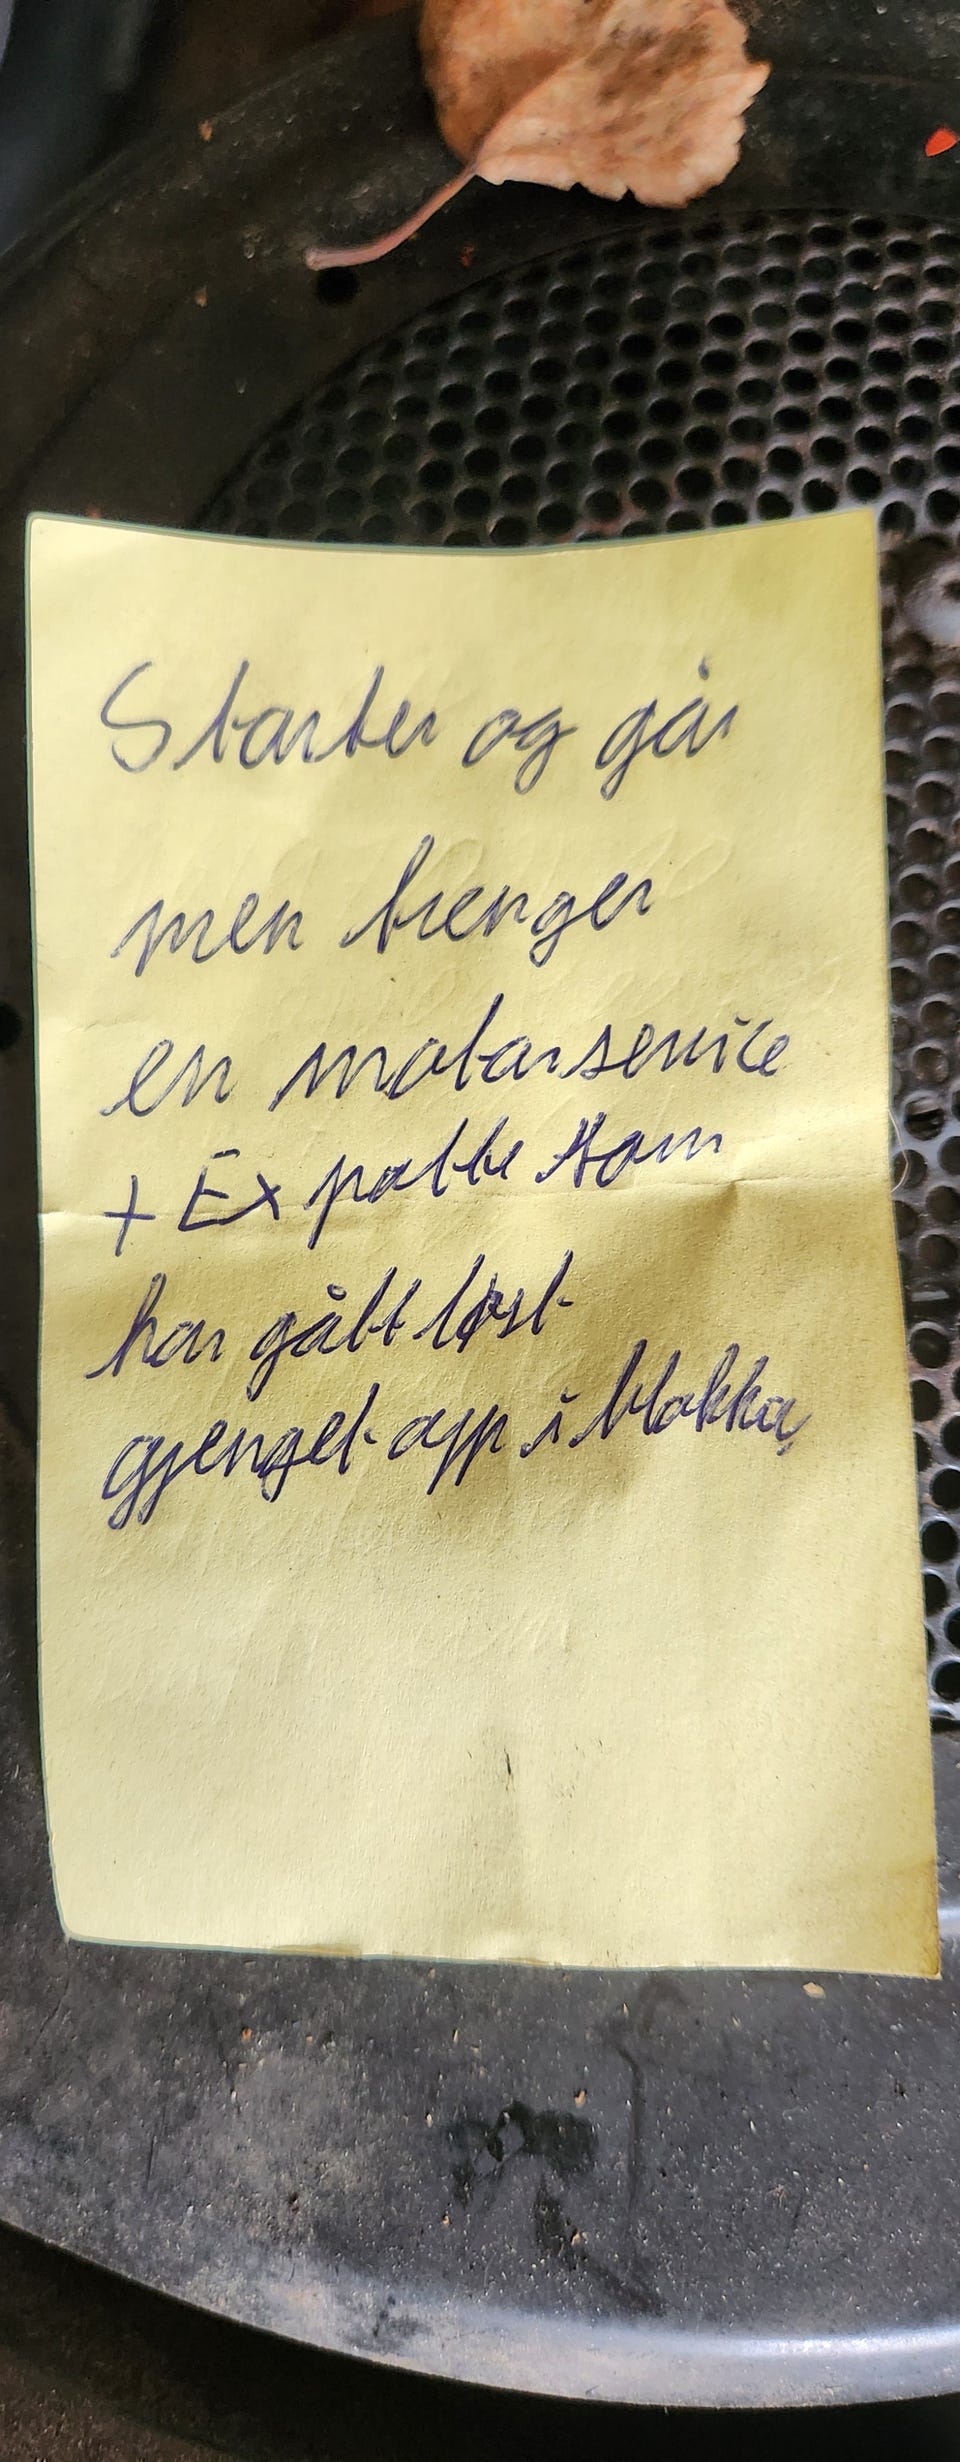 Starter og går
men trenger
en motorservice
+ Ex potte som
har gått løst
gjenget opp i blokka,